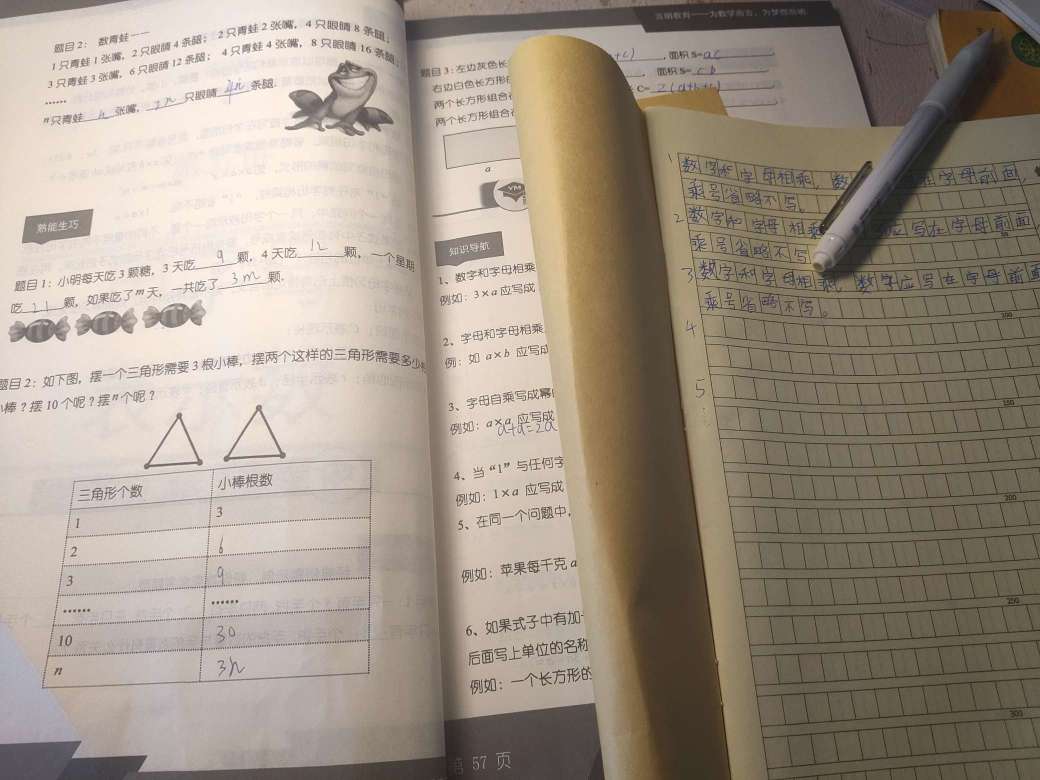 题目2：数青蛙——
1只青蛙1张嘴，2只眼睛4条腿；2只青蛙2张嘴，4只眼睛8条腿；
3只青蛙3张嘴，6只眼睛12条腿；4只青蛙4张嘴，8只眼睛16条腿；
……
n只青蛙 n 张嘴，2n 只眼睛 4n 条腿.
熟能生巧
题目1：小明每天吃3颗糖，3天吃 9 颗，4天吃 12 颗，一个星期
吃 21 颗，如果吃了m天，一共吃了 3m 颗.
题目2：如下图，摆一个三角形需要3根小棒，摆两个这样的三角形需要多少
小棒？摆10个呢？摆n个呢？
三角形个数 小棒根数
1 3
2 6
3 9
…… ……
10 30
n 3n
题目3：左边灰色长 +c) 面积S=ac
右边白色长方形 面积S=cb
两个长方形组合 C=2(a+b+c)
两个长方形组合
a
VM
知识导航
1、数字和字母相乘
例如：3×a应写成
2、字母和字母相乘
例：如a×b应写成
3、字母自乘写成幂
例如：a×a应写成
a+a=2a
4、当“1”与任何字
例如：1×a应写成
5、在同一个问题中，
例如：苹果每千克a
6、如果式子中有加
后面写上单位的名称
例如：一个长方形的
57 页
1 数字和字母相乘，数 字母前面，
乘号省略不写。
2 数字和字母相乘 应写在字母前面
乘号省略不写
3 数字和字母相乘，数字应写在字母前面
乘号省略不写。
4
5
100
150
200
250
300